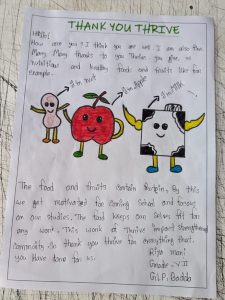 THANK YOU THRIVE
Hello!
How are you? I think you are well. I am also fine.
Many Many thanks to you Thrive. You give us
nutritious and healthy foods and fruits like for
Example.
I'm nut
I'm Apple
I'm Milk
The food and fruits contain Protein. By this
we get motivated for coming School and focus
on our studies. The food keeps our selves fit for
any work. This work of Thrive impact strengthened
community. So thank you thrive for everything that
you have done for us.
Riya mani
Grade - VII
G.L.P. Badda